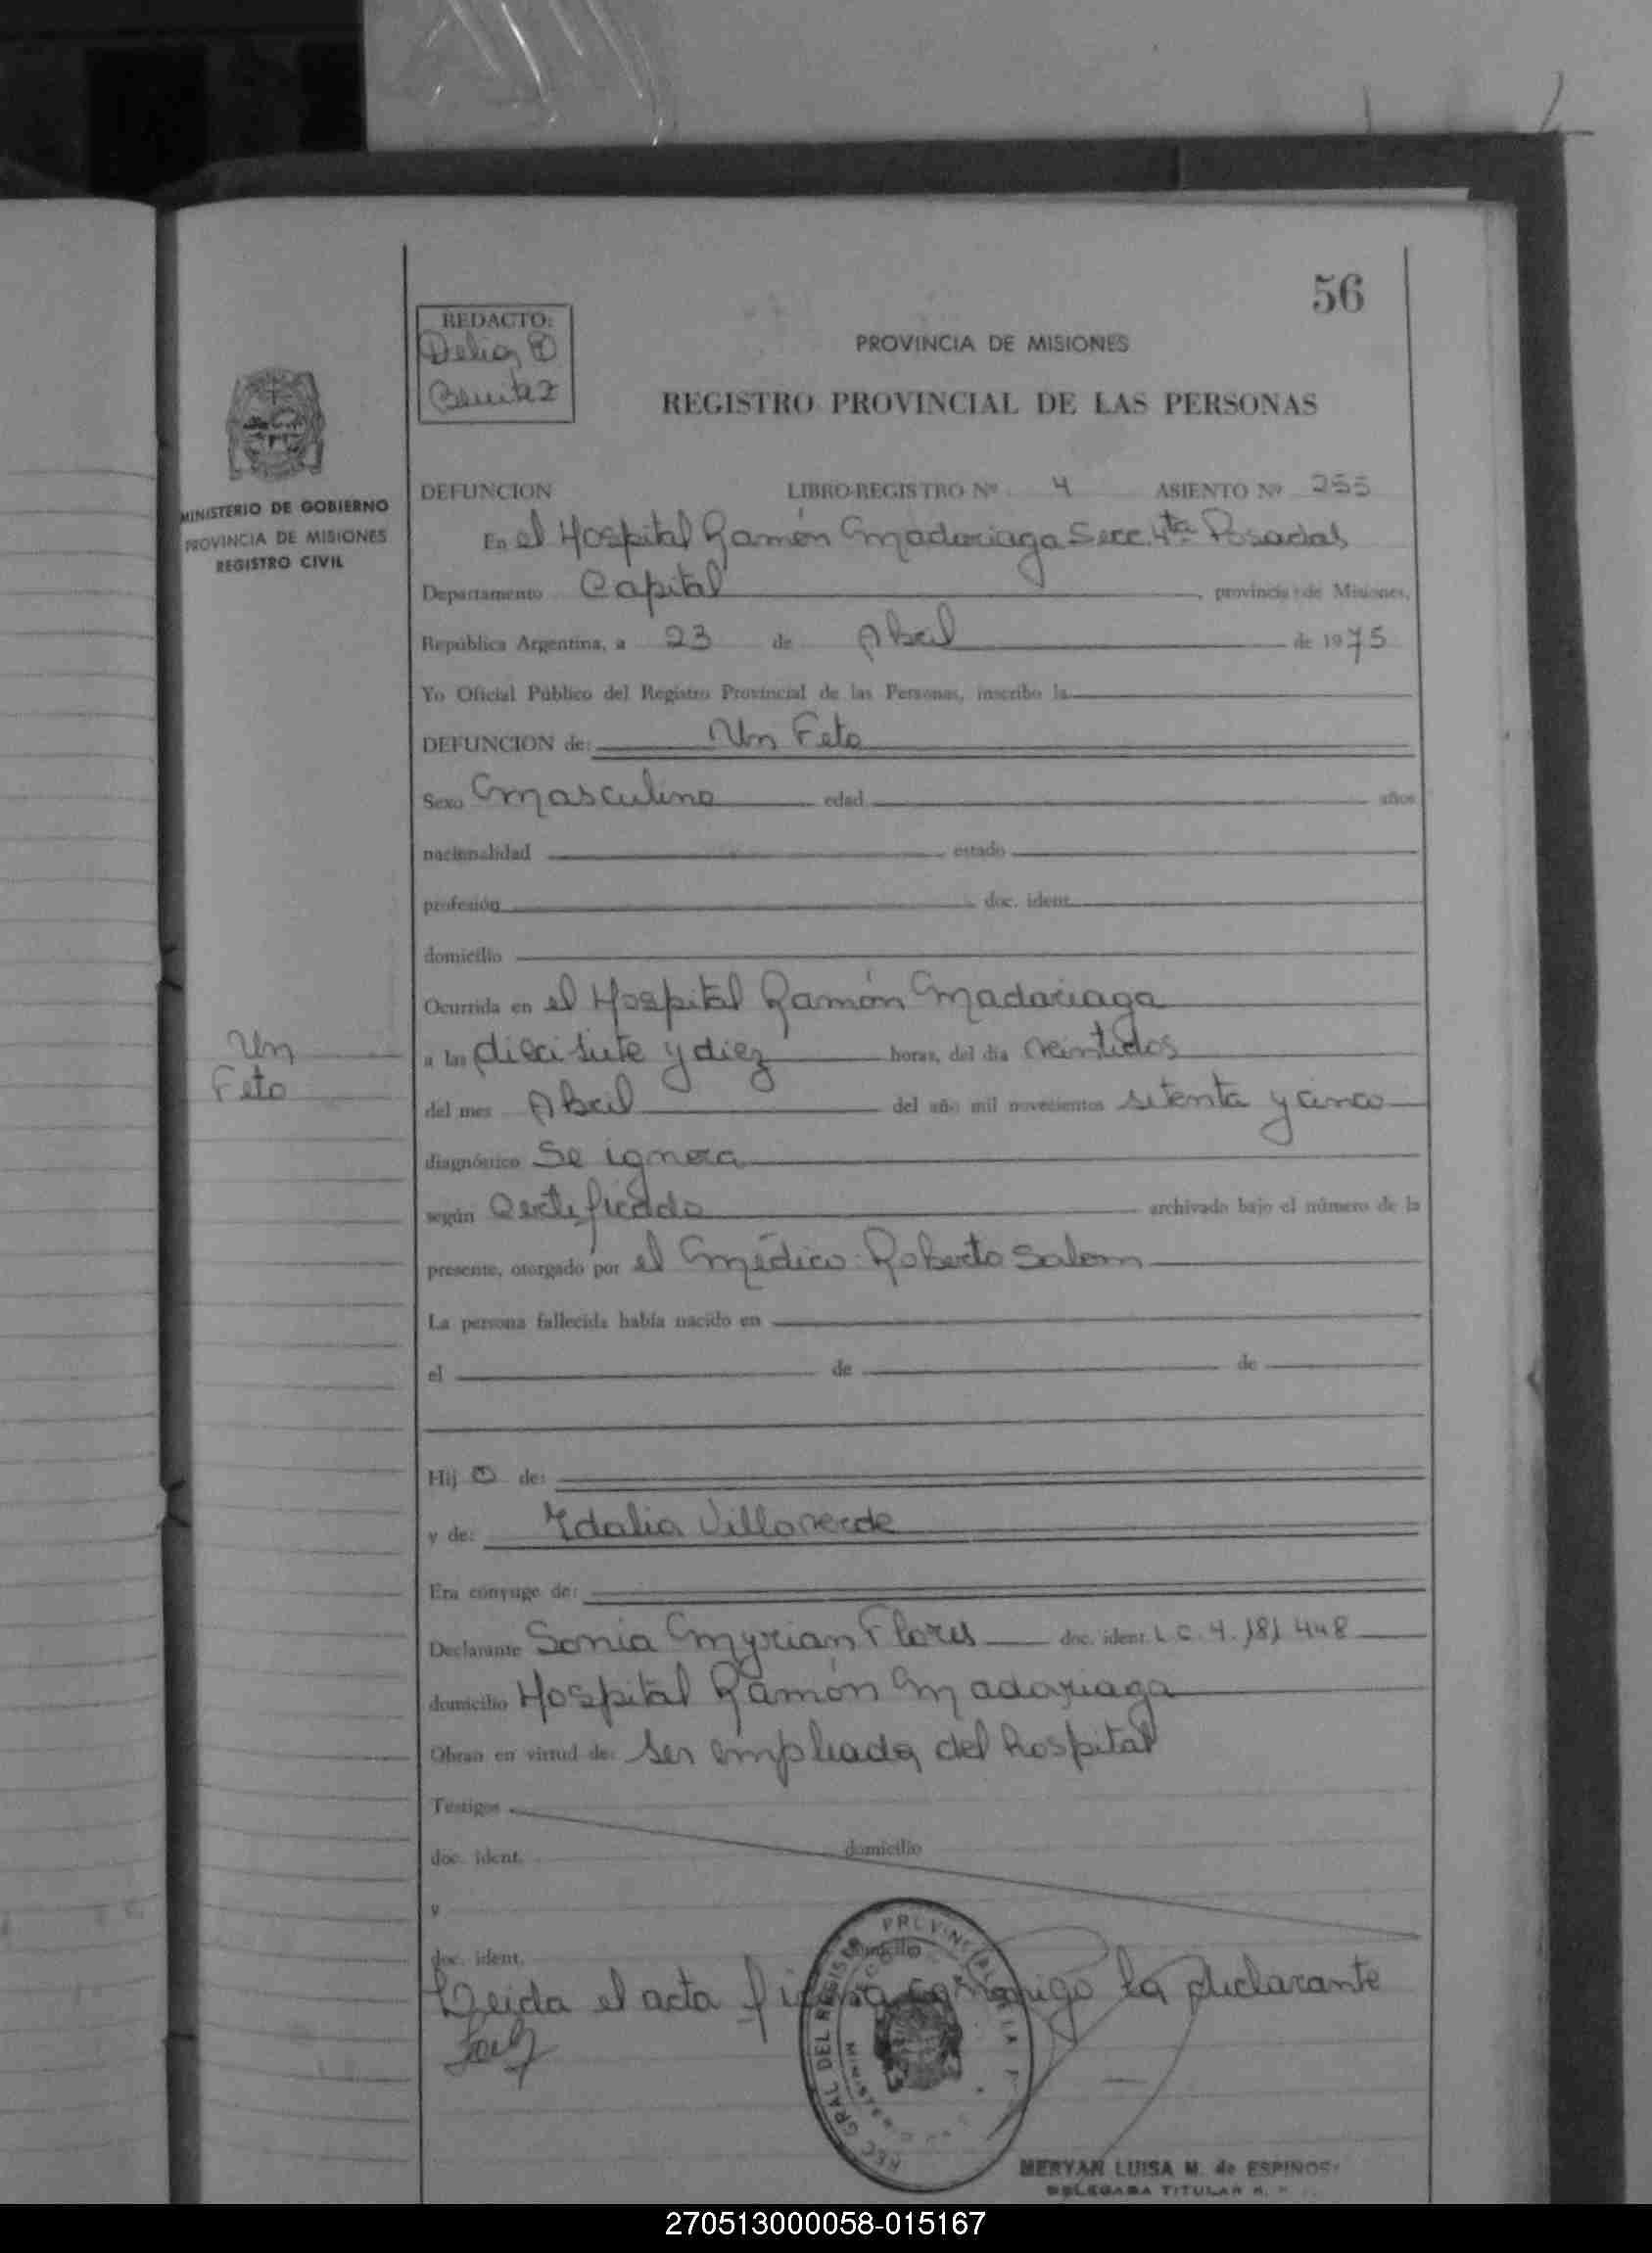 56
REDACTO:
Delia B
Benitez
PROVINCIA DE MISIONES
REGISTRO PROVINCIAL DE LAS PERSONAS
MINISTERIO DE GOBIERNO
PROVINCIA DE MISIONES
REGISTRO CIVIL
DEFUNCION LIBRO-REGISTRO Nº 4 ASIENTO Nº 255
En el Hospital Ramón Madariaga Secc. 4ta Posadas
Departamento Capital, provincia de Misiones,
República Argentina, a 23 de Abril de 1975
Yo Oficial Público del Registro Provincial de las Personas, inscribo la
DEFUNCION de: Un Feto
Sexo Masculino edad años
nacionalidad estado
profesión doc. ident.
domicilio
Ocurrida en el Hospital Ramón Madariaga
a las diecisiete y diez horas, del día veintidos
del mes Abril del año mil novecientos setenta y cinco
Un
Feto
diagnóstico Se ignora
según Certificado archivado bajo el número de la
presente, otorgado por el Médico Roberto Salom
La persona fallecida había nacido en
el de de
Hij o de:
y de: Idalia Villaverde
Era cónyuge de:
Declarante Sonia Myrian Flores doc. ident. L C. 4.181.448
domicilio Hospital Ramón Madariaga
Obran en virtud de: ser empleada del hospital
Testigos
doc. ident. domicilio
y
doc. ident. domicilio
Leida el acta firma conmigo la declarante
REG GRAL DEL REGISTRO PROVINCIAL DE LA
MERYAN LUISA M. de ESPINOS
DELEGADA TITULAR
270513000058-015167